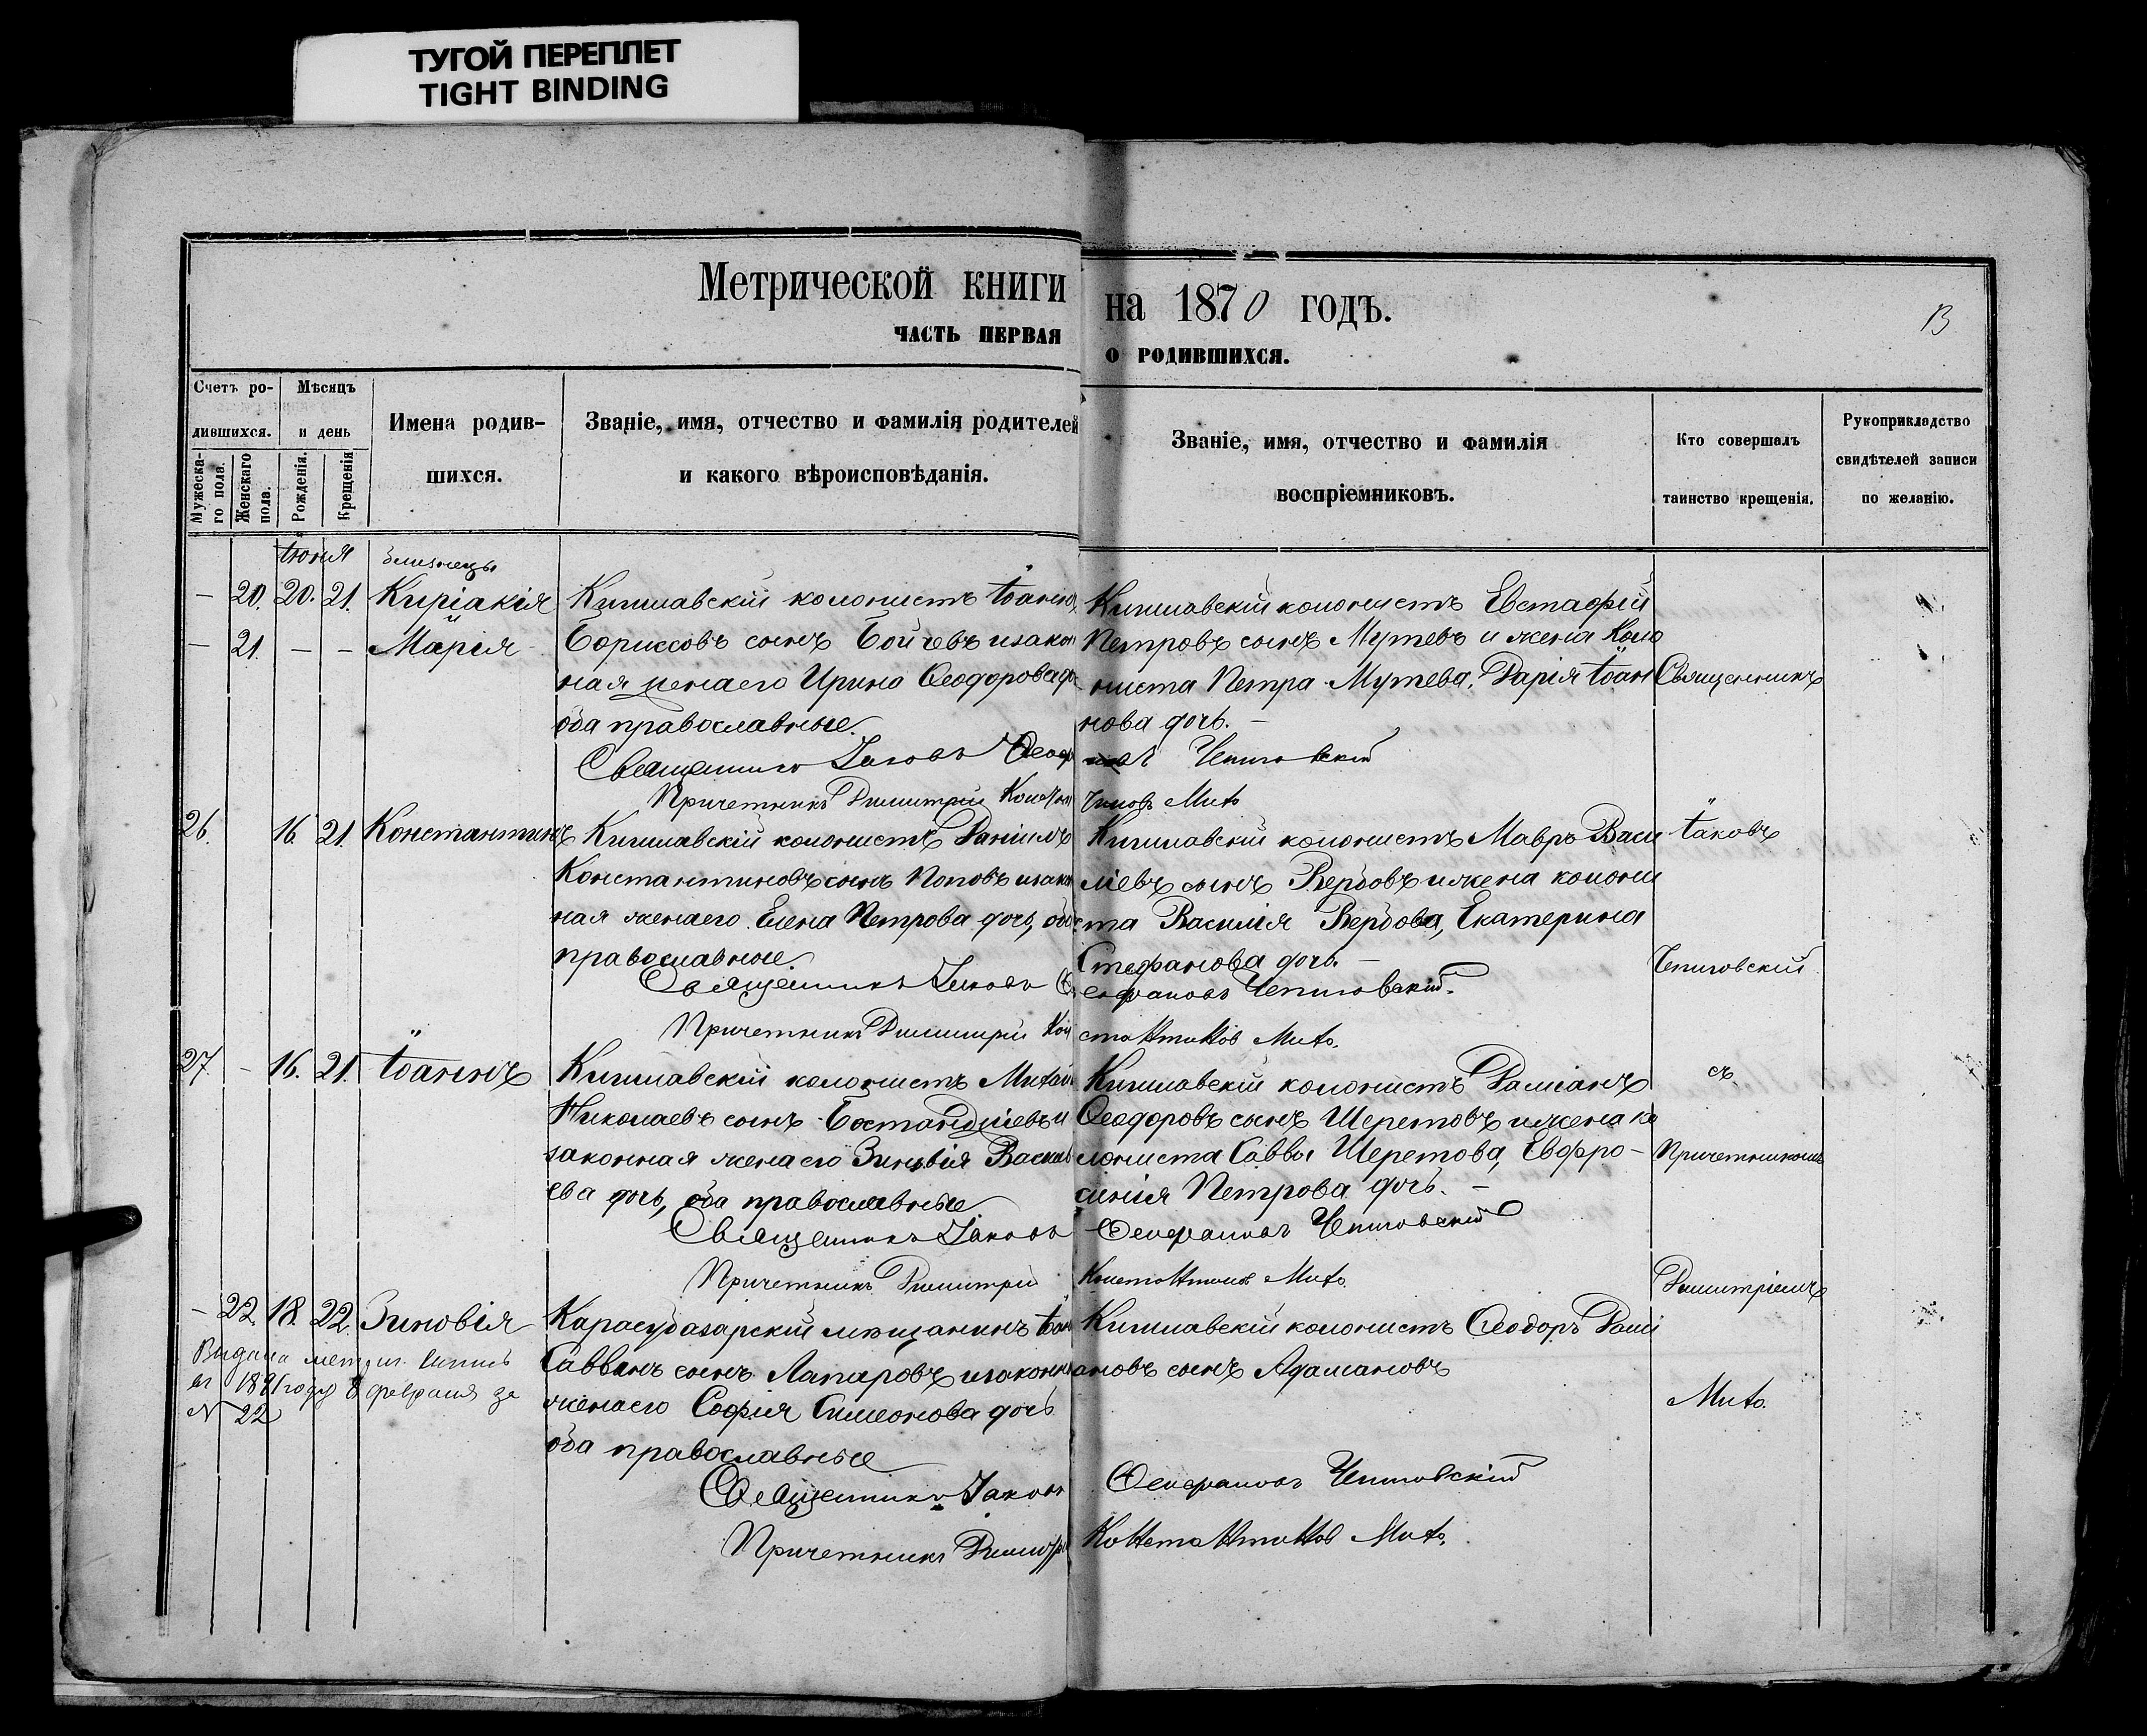 ТУГОЙ ПЕРЕПЛЕТ
TIGHT BINDING
Метрической книги на 1870 годъ.
13
ЧАСТЬ ПЕРВАЯ О РОДИВШИХСЯ.
Счетъ ро-
дившихся.
Мужеска-
го пола.
Женскаго
пола.
Мѣсяцъ
и день
Рожденія.
Крещенія
Имена родив-
шихся.
Званіе, имя, отчество и фамилія родителей
и какого вѣроисповѣданія.
Званіе, имя, отчество и фамилія
воспріемниковъ.
Кто совершалъ
таинство крещенія.
Рукоприкладство
свидѣтелей записи
по желанію.
Іюня
близнецы
— 20. 20. 21. Киріакія
— 21. — — Марія
Кишлавскій колонистъ Іоаннъ
Бориссовъ сынъ Бойчевъ и закон
ная жена его Ирина Ѳеодорова до
оба православные.
Священникъ Іаковъ Ѳеоф
Причетникъ Димитрій Конста
Кишлавскій колонистъ Евстафій
Петровъ сынъ Мутевъ и жена коло
ниста Петра Мутева, Дарія Іоан
нова дочь. —
Чепиговскій
Мито
26. 16. 21. Константинъ
Кишлавскій колонистъ Даніилъ
Константиновъ сынъ Поповъ и закон
ная жена его Елена Петрова дочь, оба
православные.
Священникъ Іаковъ Ѳ
Причетникъ Димитрій Кон
Кишлавскій колонистъ Мавръ Васи
ліевъ сынъ Вербовъ и жена колони
ста Василія Вербова, Екатерина
Стефанова дочь. —
еофановъ Чепиговскій.
стантиновъ Мито.
27. — 16. 21. Іоаннъ
Кишлавскій колонистъ Михаи
Николаевъ сынъ Бостанджіевъ и
законная жена его Зиновія Василь
ева дочь, оба православные
Священникъ Іаковъ
Причетникъ Димитрій
Кишлавскій колонистъ Даміанъ
Ѳеодоровъ сынъ Шеретовъ и жена ко
лониста Саввы Шеретова, Евфро-
синія Петрова дочь. —
Ѳеофановъ Чепиговскій
Константиновъ Мито.
— 22. 18. 22. Зиновія
Выдана метрич. выпись
въ 1891 году 8 февраля за
N 22
Карасубазарскій мѣщанинъ Іоан
Саввинъ сынъ Лапаровъ и законна
жена его Софія Симеонова дочь
оба православные
Священникъ Іаковъ
Причетникъ Димитрі
Кишлавскій колонистъ Ѳеодоръ Дамі
ановъ сынъ Адамановъ
Ѳеофановъ Чепиговскій
Константиновъ Мито.
Священникъ
Іаковъ
Чепиговскій
съ
Причетникомъ
Димитріемъ
Мито.